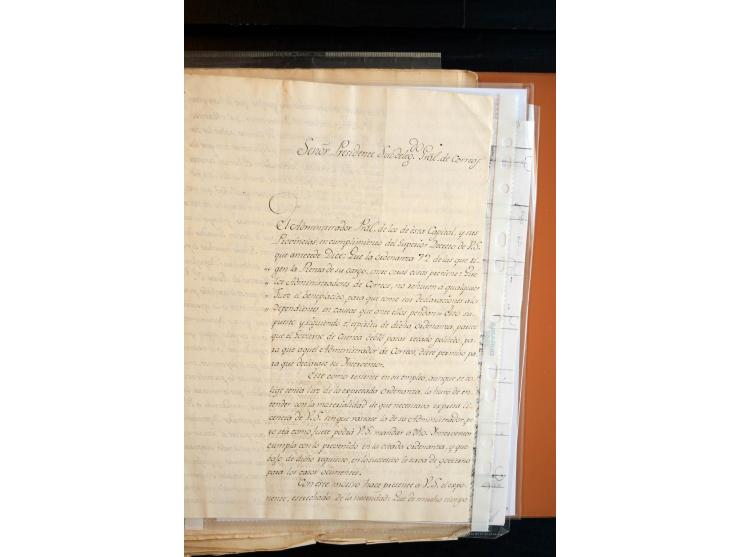 Señor Presidente Subdeleg.do Pral. de Correos
El Administrador Pral. de los de esta Capital, y sus
Provincias, en cumplimiento del Superior Decreto de V.S.
que antecede Dice: Que la ordenanza 72 de las que ri-
gen la Renta de su cargo, entre otras cosas previene: Que
" los Administradores de Correos, no rehusen a qualquier
" Juez el beneplacito, para que tome sus declaraciones a los
" dependientes en causas que ante ellos pendan: esto su-
puesto y siguiendo el espiritu de dicha ordenanza, parece
que el Govierno de Cuenca debió pasar recado politico, pa-
ra que aquel Administrador de Correos, diere permiso pa-
ra que declarase su Interventor.
Este como reciente en su empleo, aunque se co-
lige tenia luz de la expresada ordenanza, la huvo de en-
tender con la materialidad de que necesitava expresa li-
cencia de V.S. sin que vastase la de su Administrador, pe-
ro sea como fuere podrá V.S. mandar a dho. Interventor
cumpla con lo prevenido en la citada ordenanza, y que
bajo de dicho requisito, en lo succesivo le sirva de govierno
para los casos ocurrentes.
Con este motivo hace presente a V.S. el expo-
nente, estrechado de la necesidad: Que de mucho tiempo